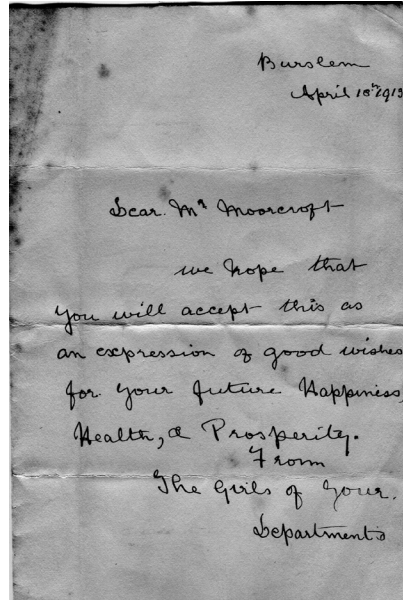 Burslem
April 10th 1913
Dear Mr Moorcroft
we hope that
you will accept this as
an expression of good wishes
for your future Happiness,
Health, & Prosperity.
From
The Girls of your.
Departments